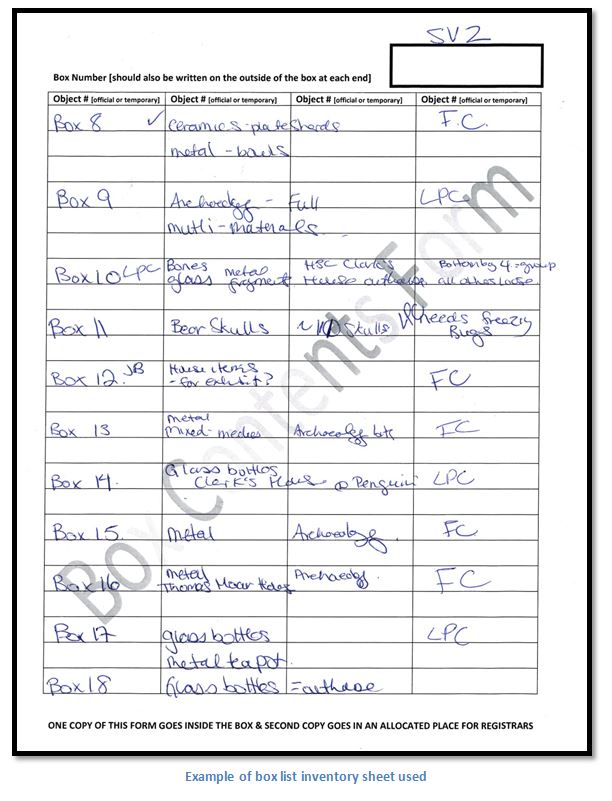 SV2
Box Number [should also be written on the outside of the box at each end]
Object # [official or temporary] Object # [official or temporary] Object # [official or temporary] Object # [official or temporary]
Box 8 ✓ Ceramics-plate shards F.C.
metal - bowls
Box 9 Archaeology - Full LPC
mutli-materials.
Bones HSC Clark's Bottom bag 4 = group
Box 10 LPC glass metal fragments House outhouse all others loose
Box 11 Bear Skulls ~ 10 Skulls needs freezing
Bugs
Box 12. JB House items FC
- for exhibit?
metal
Box 13 Mixed-medies Archaeology bits FC
Glass bottles
Box 14. Clark's House @ Penguin LPC
Box 15. Metal Archaeology. FC
Box 16 Metal Archaeology. FC
Thomas Moar
Box 17 glass bottles LPC
metal teapot.
Box 18 Glass bottles =
Box Contents Form
ONE COPY OF THIS FORM GOES INSIDE THE BOX & SECOND COPY GOES IN AN ALLOCATED PLACE FOR REGISTRARS
Example of box list inventory sheet used